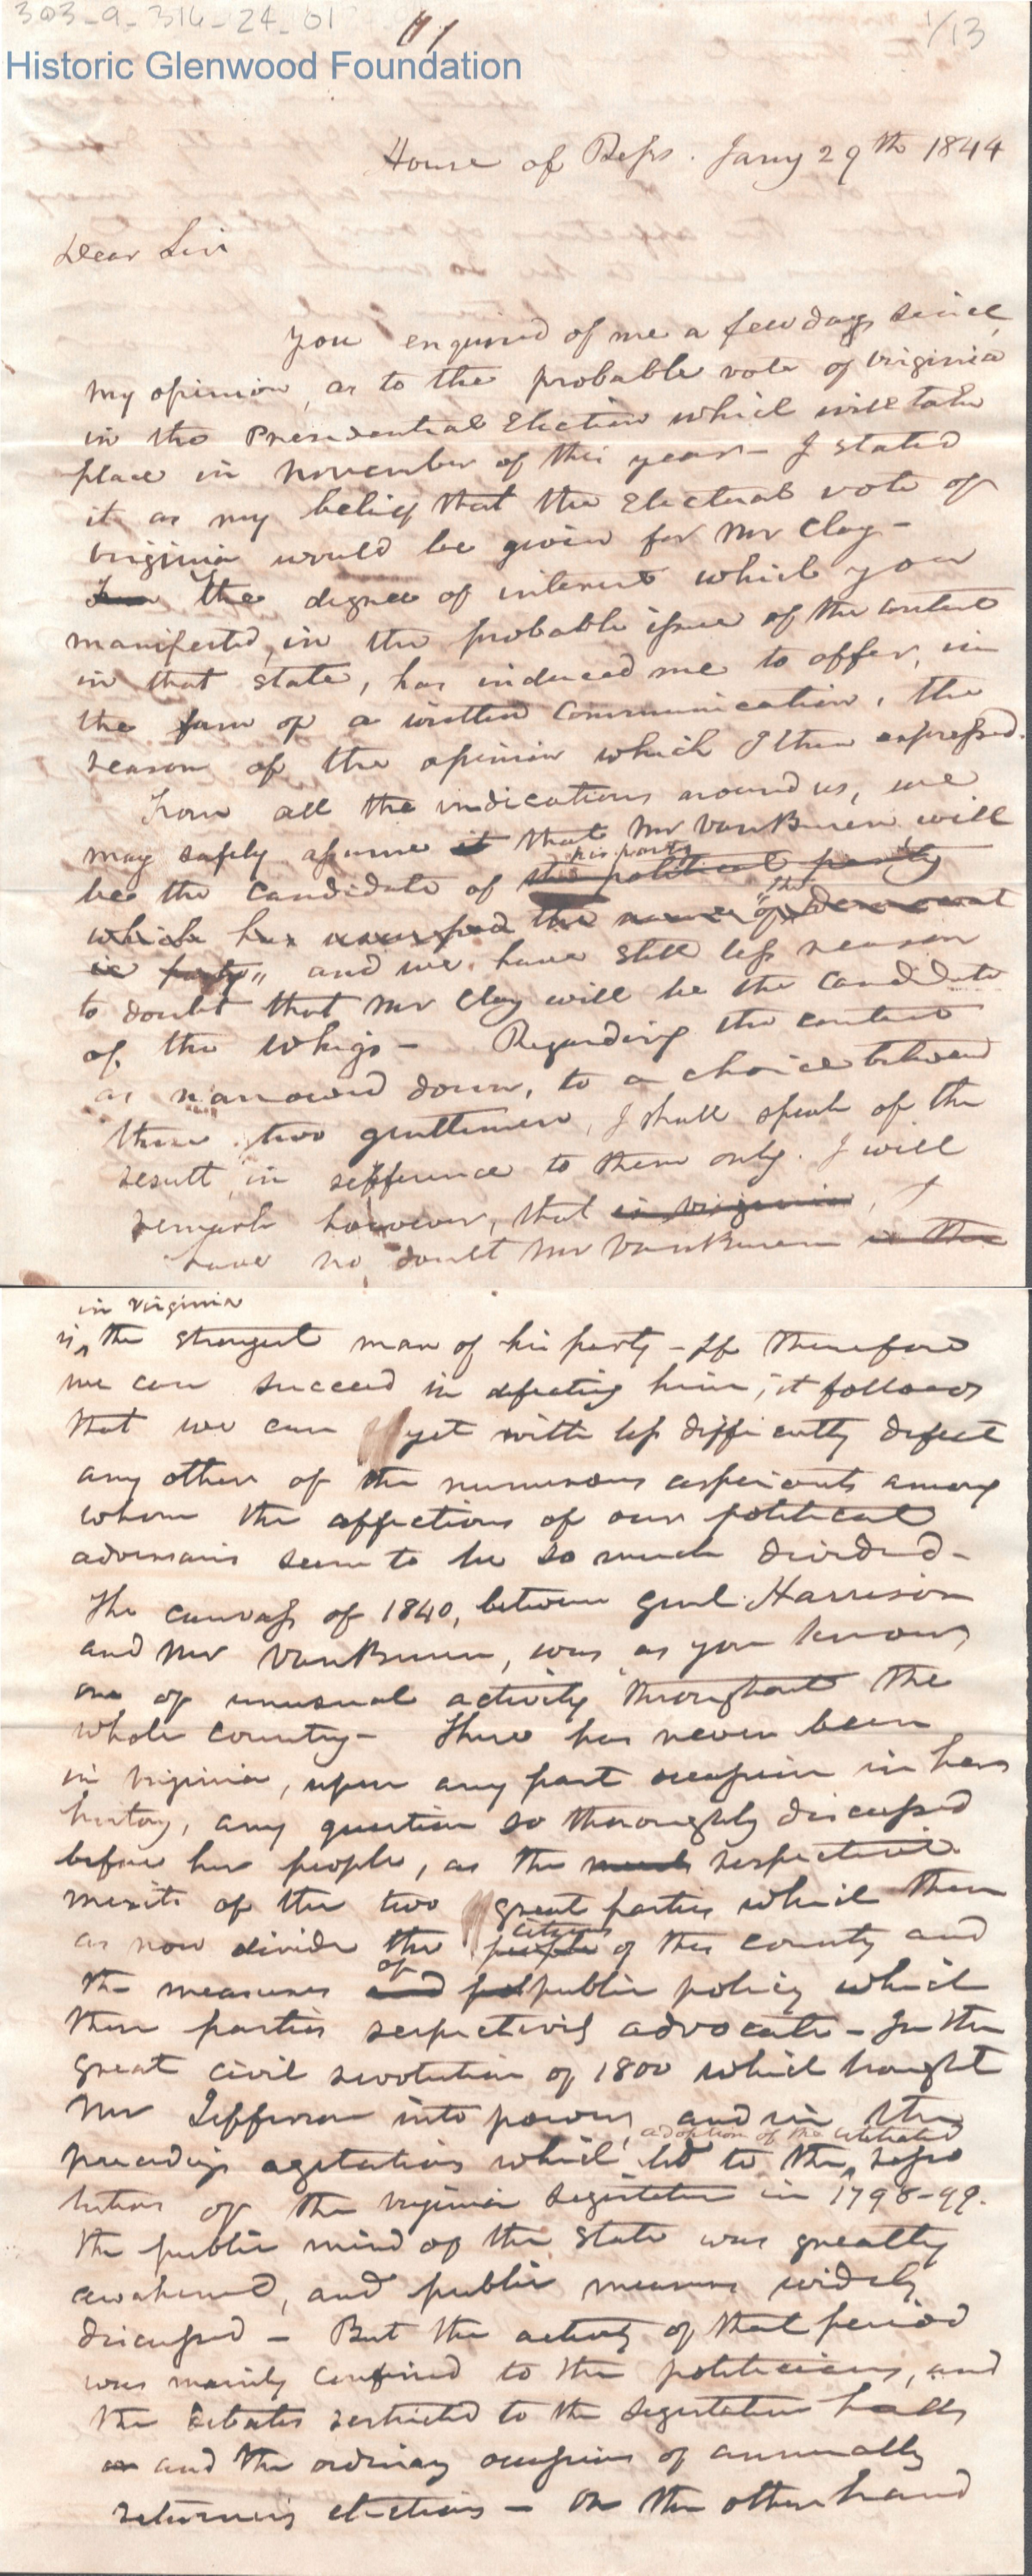 303-9-316-24-01
1/13
Historic Glenwood Foundation
House of Reps. Jany 29th 1844
Dear Sir
You enquired of me a few days since,
my opinion, as to the probable vote of Virginia
in the Presidential Election which will take
place in November of this year - I stated
it as my belief that the Electoral vote of
Virginia would be given for Mr Clay -
the degree of interest which you
manifested, in the probable issue of the contest
in that state, has induced me to offer, in
the form of a written communication, the
reason of the opinion which I then expressed.
From all the indications around us, we
may safely assume it that Mr Van Buren will
his party
be the candidate of the political party
the
which has usurped the name of Democrat
ic party" and we have still less reason
to doubt that Mr Clay will be the Candidate
of the Whigs - Regarding the contest
as narrowed down, to a choice between
these two gentlemen, I shall speak of the
result, in refference to them only. I will
remark however, that in Virginia, I
have no doubt Mr Van Buren is the
in Virginia
is the strongest man of his party - If therefore
we can succeed in defeating him, it follows
that we can yet with less difficulty defeat
any other of the numerous aspirants among
whom the affections of our political
adversaries seem to be so much divided -
The canvass of 1840, between Genl. Harrison
and Mr Van Buren, was as you know
one of unusual activity throughout the
whole country - There has never been
in Virginia, upon any past occasion in her
history, any question so thoroughly discussed
before her people, as the respective
merits of the two great parties which then
citizens
as now divide the people of this country and
of
the measures and public policy which
these parties respectively advocate - In the
great civil revolution of 1800 which brought
Mr Jefferson into power, and in the
adoption of the celebrated
preceding agitations which led to the reso
lutions of the Virginia Legislature in 1798-99.
the public mind of the State was greatly
awakened, and public measures widely
discussed - But the activity of that period
was mainly confined to the politicians, and
the debates restricted to the Legislative halls
and the ordinary occasions of annually
returning elections - On the other hand